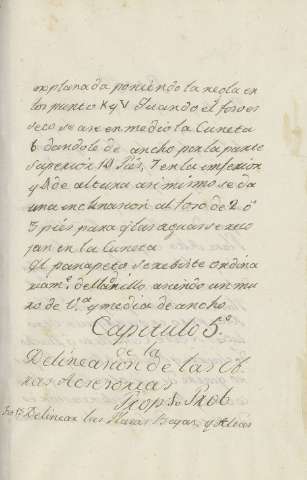 explanada poniendo la regla en
los punto K y V Quando el foro es
seco se are en medio la Cuneta
6 dandole de ancho por la parte
superior 18 piés, 7 en la inferior
y de altura asi mismo se da
una inclinacion al foro de 2 ó
3 piés para q.e las aguas se reco
jan en la Cuneta
El parapeto se rebiste ordina
riam.te de ladrillo asiendo un mu
ro de 1.ª y media de ancho
Capitulo 5.º
de la
Delineacion de las Ob
ras Acresorias
Prop. Prob.
Delinear las Plazas Bajas, y Altas